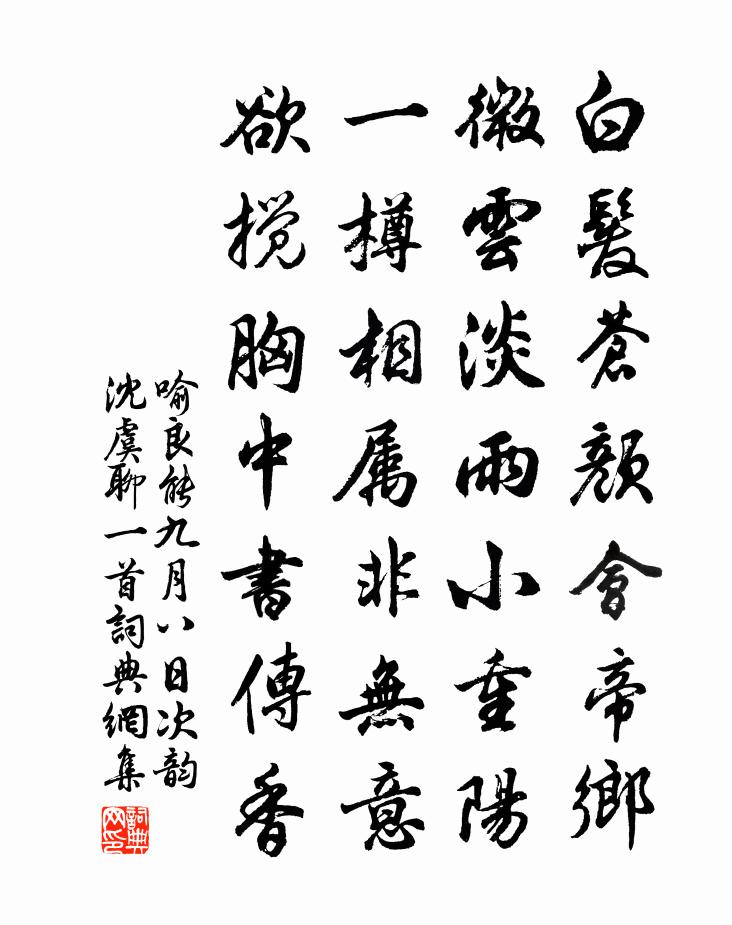 白髮蒼顏會帝鄉
微雲淡雨小重陽
一樽相属非無意
欲攪胸中書傳香
喻良能九月八日次韵
沈虞聊一首詞典網集
詞典网印